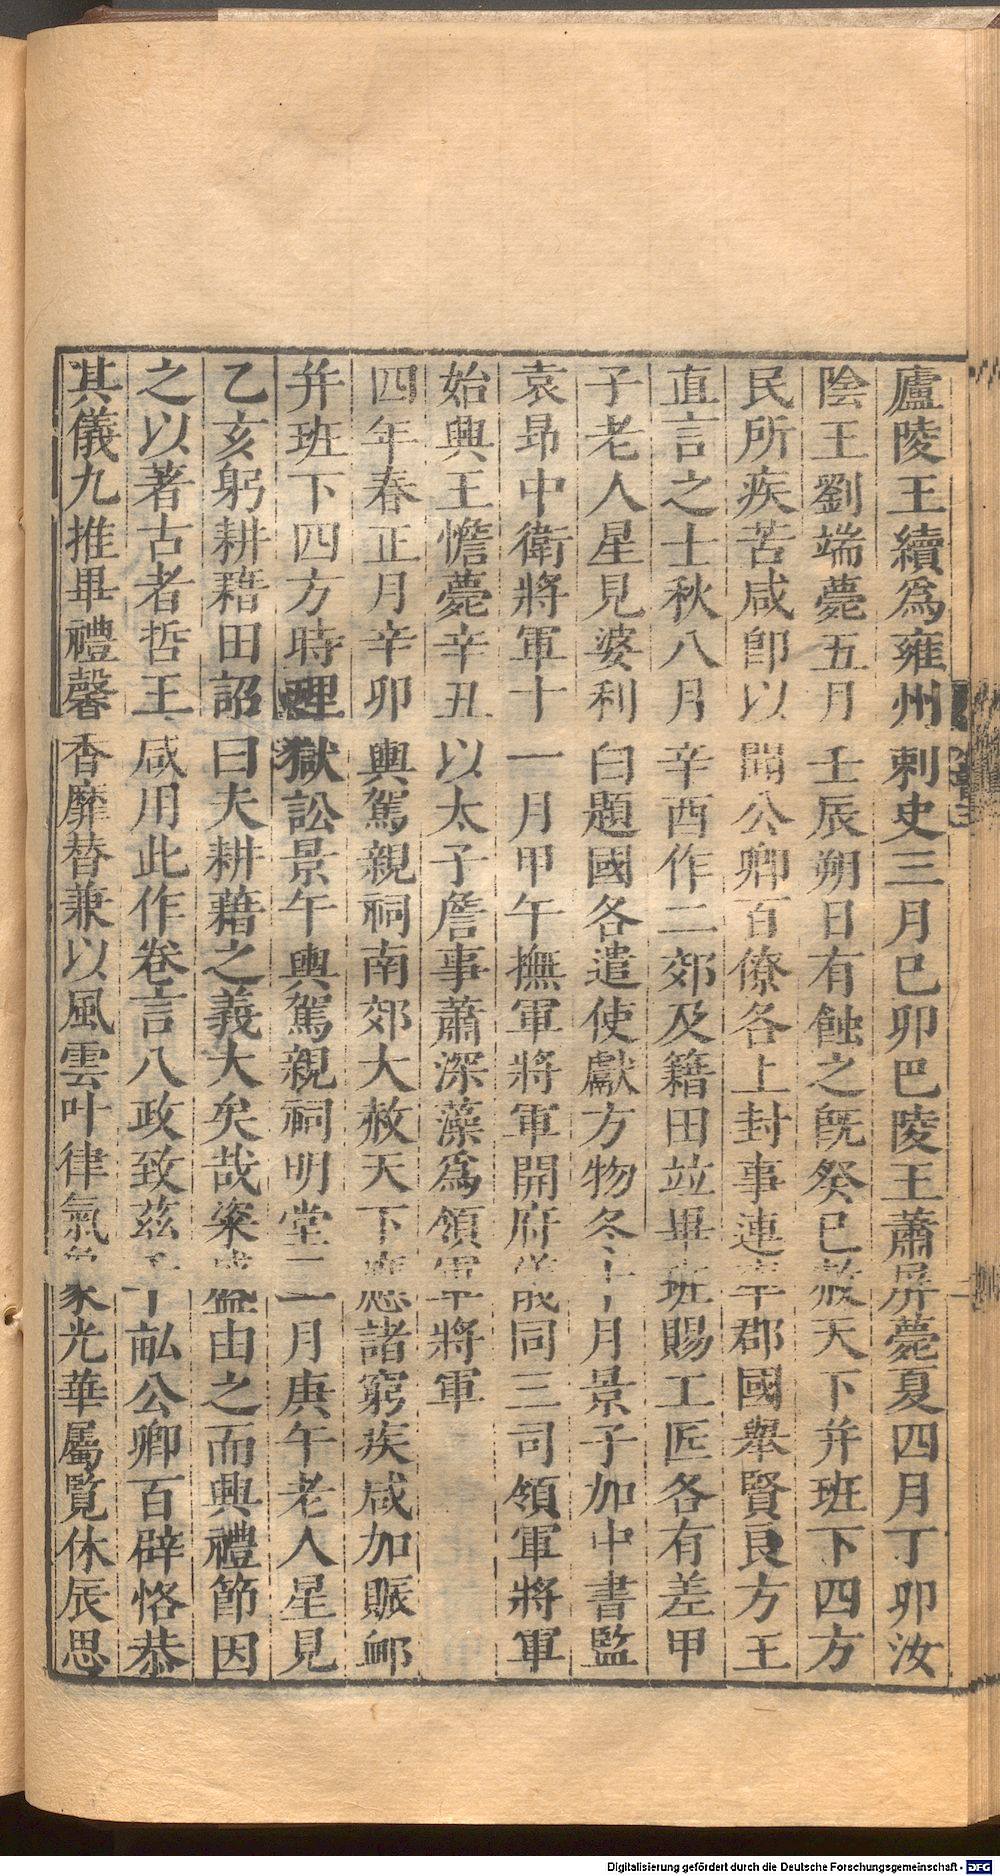 廬陵王續爲雍州刺史三月巳卯巴陵王蕭屏薨夏四月丁卯汝
陰王劉端薨五月壬辰朔日有蝕之旣癸巳赦天下并班下四方
民所疾苦咸卽以聞公卿百僚各上封事連率郡國舉賢良方正
直言之士秋八月辛酉作二郊及籍田竝畢班賜工匠各有差甲
子老人星見婆利白題國各遣使獻方物冬十月景子加中書監
袁昂中衛將軍十一月甲午撫軍將軍開府儀同三司領軍將軍
始興王憺薨辛丑以太子詹事蕭深藻爲領軍將軍
四年春正月辛卯輿駕親祠南郊大赦天下應諸窮疾咸加賑卹
并班下四方時理獄訟景午輿駕親祠明堂二月庚午老人星見
乙亥躬耕藉田詔曰夫耕藉之義大矣哉粢盛由之而興禮節因
之以著古者哲王咸用此作卷言八政致茲千畝公卿百辟恪恭
其儀九推畢禮馨香靡替兼以風雲叶律氣象光華屬覽休辰思
Digitalisierung gefördert durch die Deutsche Forschungsgemeinschaft - DFG